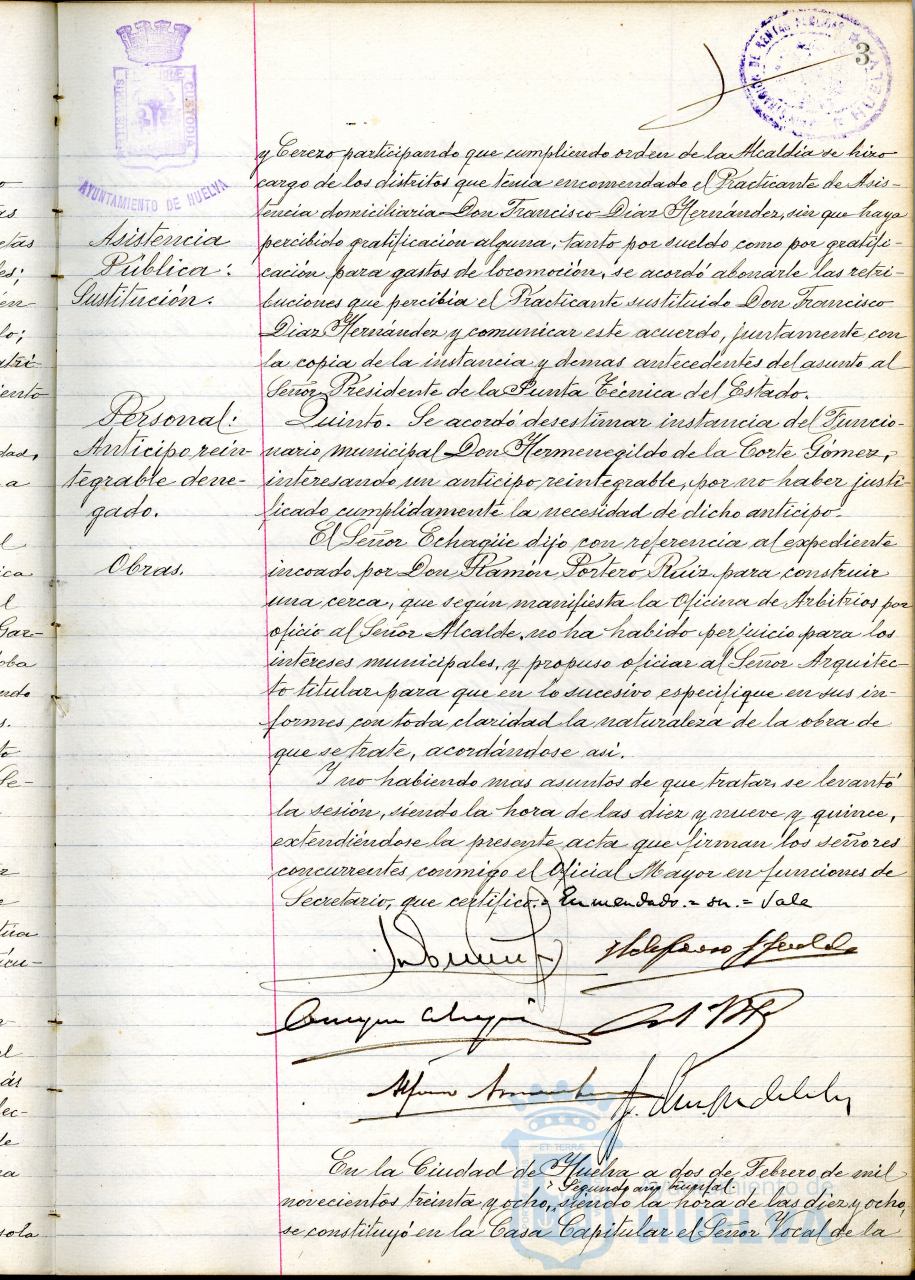 3
AYUNTAMIENTO DE HUELVA
y Cerezo participando que cumpliendo orden de la Alcaldía se hizo
cargo de los distritos que tenía encomendado el Practicante de Asis-
tencia domiciliaria Don Francisco Díaz Hernández, sin que haya
percibido gratificación alguna, tanto por sueldo como por gratifi-
cación para gastos de locomoción, se acordó abonarle las retri-
buciones que percibía el Practicante sustituido Don Francisco
Díaz Hernández y comunicar este acuerdo, juntamente con
la copia de la instancia y demas antecedentes del asunto al
Señor Presidente de la Junta Técnica del Estado.
Asistencia
Pública:
Sustitución.
Quinto. Se acordó desestimar instancia del Funcio-
nario municipal Don Hermenegildo de la Corte Gómez,
interesando un anticipo reintegrable, por no haber justi-
ficado cumplidamente la necesidad de dicho anticipo.
Personal:
Anticipo rein-
tegrable dene-
gado.
El Señor Echagüe dijo con referencia al expediente
incoado por Don Ramón Portero Ruiz para construir
una cerca, que según manifiesta la Oficina de Arbitrios por
oficio al Señor Alcalde, no ha habido perjuicio para los
intereses municipales, y propuso oficiar al Señor Arquitec-
to titular para que en lo sucesivo especifique en sus in-
formes con toda claridad la naturaleza de la obra de
que se trate, acordándose asi.
Obras.
Y no habiendo mas asuntos de que tratar, se levantó
la sesión, siendo la hora de las diez y nueve y quince,
extendiéndose la presente acta que firman los señores
concurrentes conmigo el Oficial Mayor en funciones de
Secretario, que certifico.= Enmendado.= su.= Vale
En la Ciudad de Huelva a dos de Febrero de mil
Segundo año triunfal.
novecientos treinta y ocho, siendo la hora de las diez y ocho,
se constituyó en la Casa Capitular el Señor Vocal de la
Ayuntamiento de
HUELVA